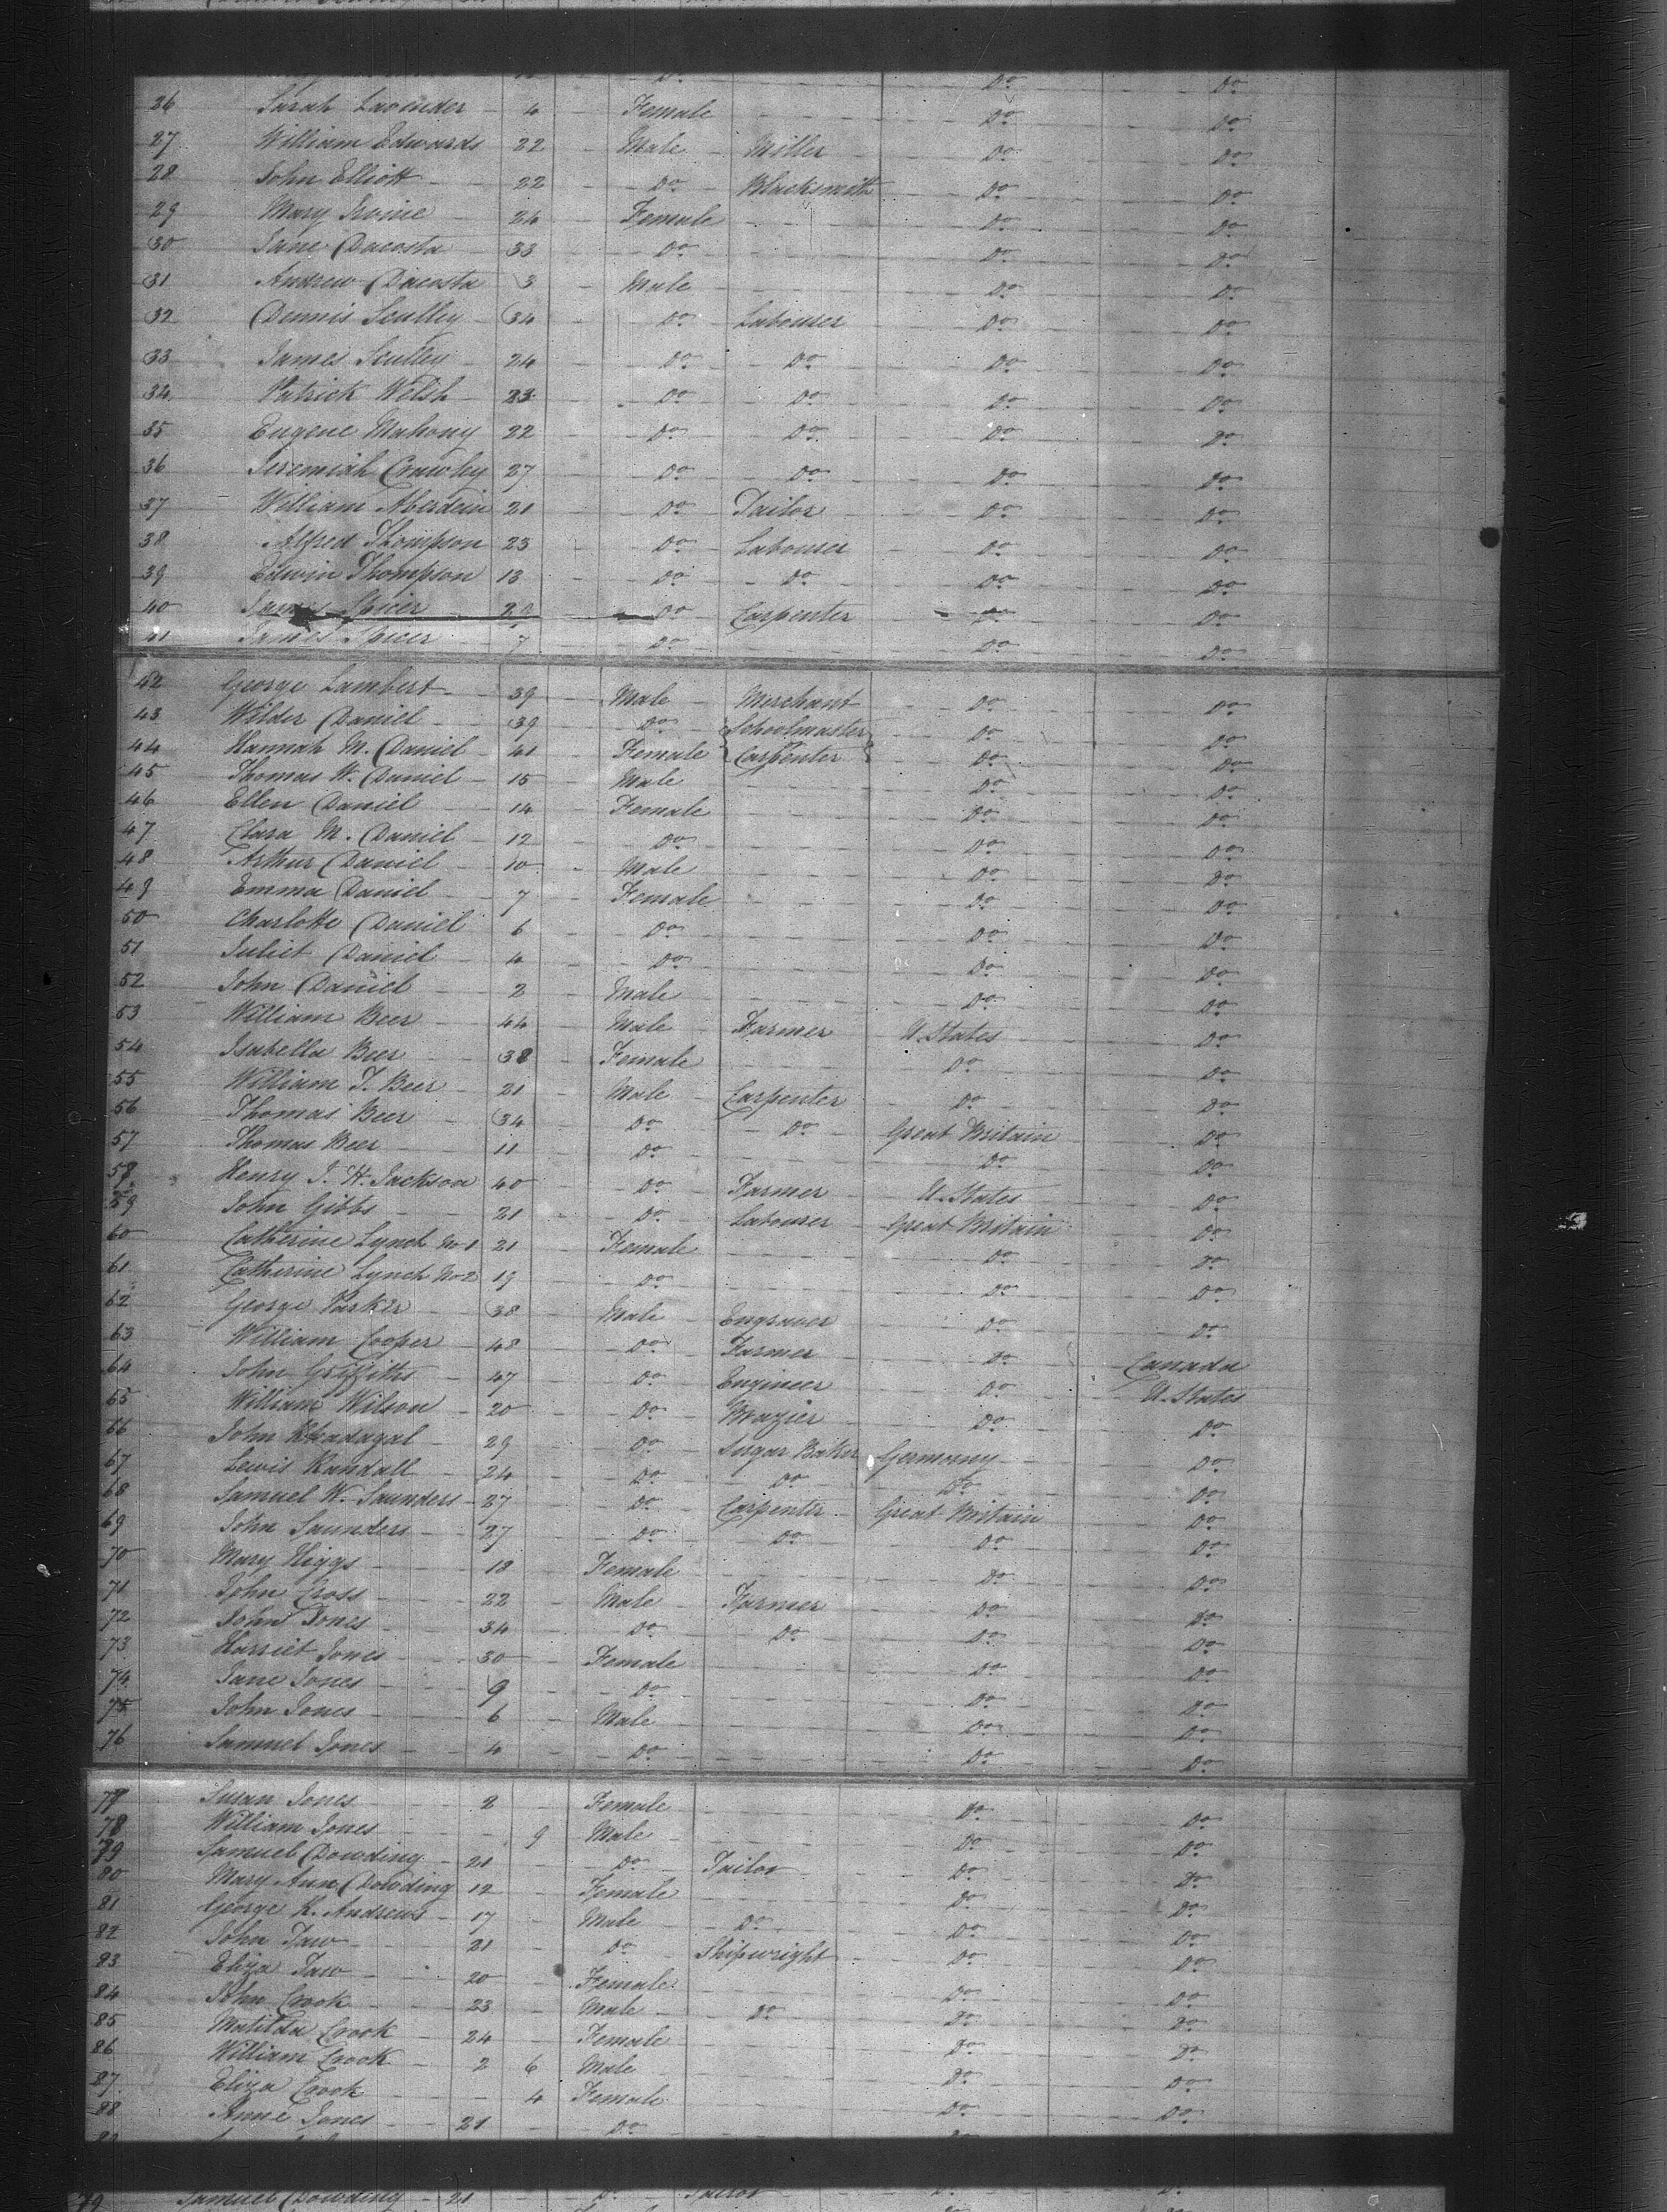 Do Do
26 Sarah Lavinder 4 Female Do Do
27 William Edwards 22 Male Miller Do Do
28 John Elliott 22 Do Blacksmith Do Do
29 Mary Irvine 24 Female Do Do
30 Jane Dacosta 33 Do Do Do
31 Andrew Dacosta 3 Male Do Do
32 Dennis Sculley 34 Do Labourer Do Do
33 James Sculley 24 Do Do Do Do
34 Patrick Welsh 23 Do Do Do Do
35 Eugene Mahony 22 Do Do Do Do
36 Jeremiah Crowley 27 Do Do Do Do
37 William Aberdein 21 Do Tailor Do Do
38 Alfred Thompson 23 Do Labourer Do Do
39 Edwin Thompson 13 Do Do Do Do
40 James Spicer Do Carpenter Do Do
41 James Spicer 7 Do Do Do
42 George Lambert 39 Male Merchant Do Do
43 Wilder Daniel 39 Do Schoolmaster Do Do
44 Hannah M. Daniel 41 Female Carpenter Do Do
45 Thomas W. Daniel 15 Male Do Do
46 Ellen Daniel 14 Female Do Do
47 Clara M. Daniel 12 Do Do Do
48 Arthur Daniel 10 Male Do Do
49 Emma Daniel 7 Female Do Do
50 Charlotte Daniel 6 Do Do Do
51 Juliet Daniel 4 Do Do Do
52 John Daniel 2 Male Do Do
53 William Beer 44 Male Farmer U. States Do
54 Isabella Beer 38 Female Do Do
55 William T. Beer 21 Male Carpenter Do Do
56 Thomas Beer 34 Do Do Great Britain Do
57 Thomas Beer 11 Do Do Do
58 Henry J. H. Jackson 40 Do Farmer U. States Do
59 John Gibbs 21 Do Labourer Great Britain Do
60 Catherine Lynch No 1 21 Female Do Do
61 Catherine Lynch No 2 19 Do Do Do
62 George Parker 38 Male Engraver Do Do
63 William Cooper 48 Do Farmer Do Canada
64 John Griffiths 47 Do Engineer Do U. States
65 William Wilson 20 Do Brazier Do Do
66 John 29 Do Sugar Baker Germany Do
67 Lewis Randall 24 Do Do Do Do
68 Samuel W. Saunders 27 Do Carpenter Great Britain Do
69 John Saunders 27 Do Do Do Do
70 Mary Higgs 18 Female Do Do
71 John Cross 22 Male Farmer Do Do
72 John Jones 34 Do Do Do Do
73 Harriet Jones 30 Female Do Do
74 Jane Jones 9 Do Do Do
75 John Jones 6 Male Do Do
76 Samuel Jones 4 Do Do Do
77 Susan Jones 2 Female Do Do
78 William Jones 9 Male Do Do
79 Samuel Dowding 21 Do Tailor Do Do
80 Mary Ann Dowding 12 Female Do Do
81 George K. Andrews 17 Male Do Do Do
82 John Taw 21 Do Shipwright Do Do
83 Eliza Taw 20 Female Do Do
84 John Crook 23 Male Do Do Do
85 Matilda Crook 24 Female Do Do
86 William Crook 2 6 Male Do Do
87 Eliza Crook 4 Female Do Do
88 Anne Jones 21 Do Do
79 Samuel Dowding 21 Do Tailor